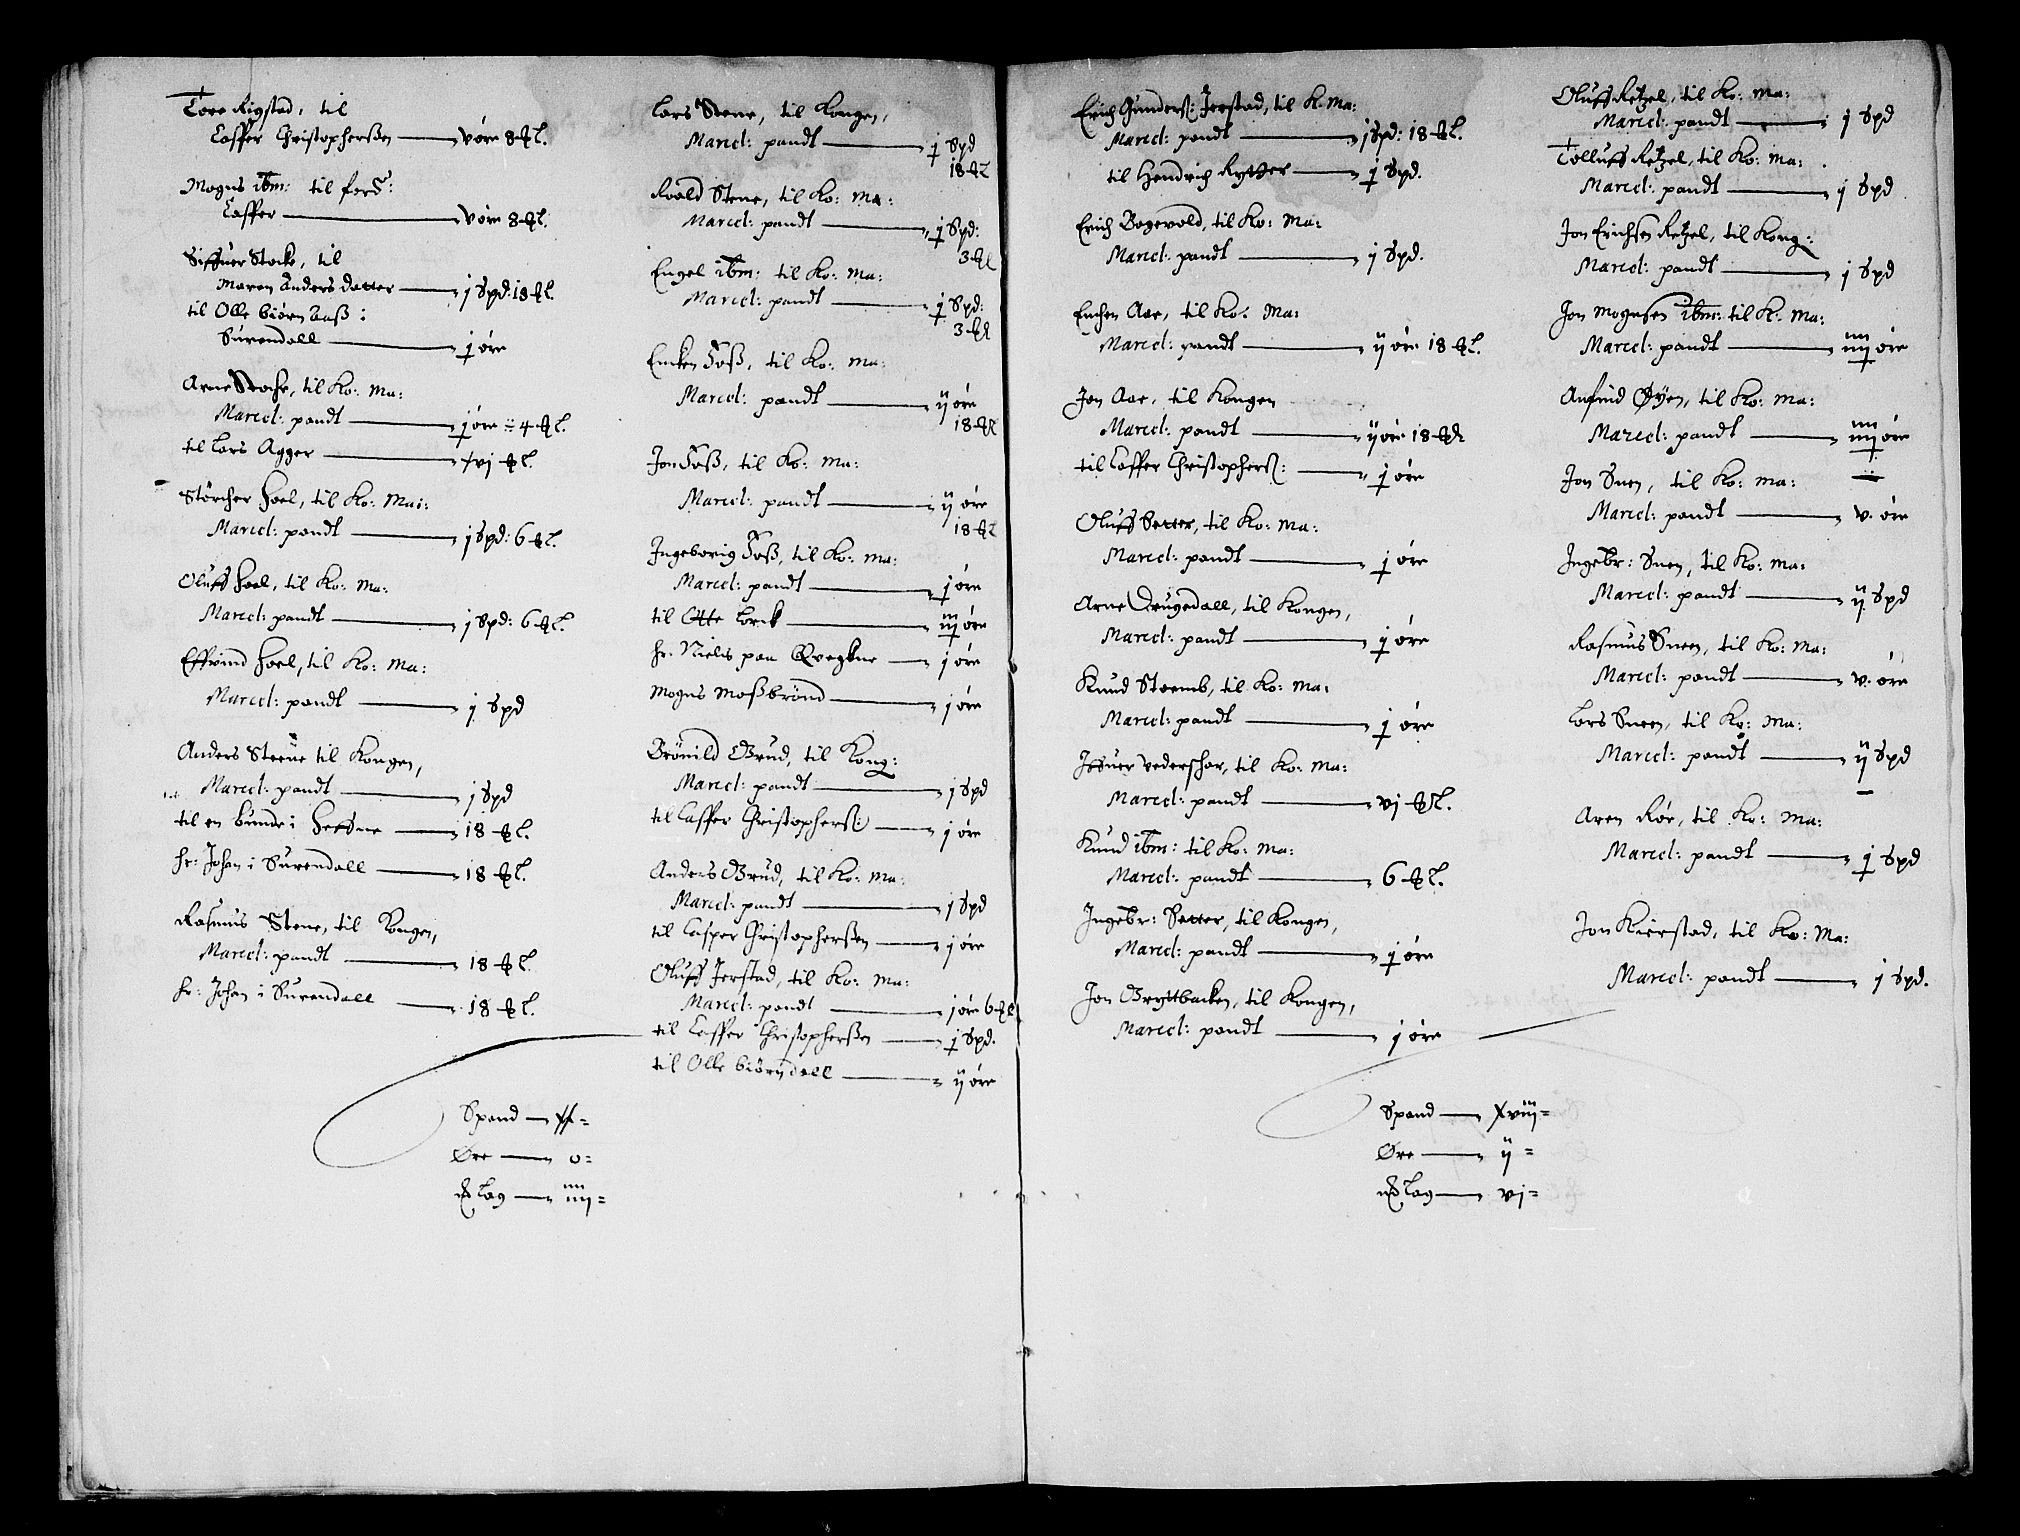 Tore Rigstad, til
Casper Christophersßen — v øre 8 ℔ l.
Mogns ibm: til ford:
Casper — v øre 8 ℔ l.
Siffuer Stocke, til
Maren Anders datter — j Spd: 18 ℔ l.
til Olle Biørn baß i
Surendall — j øre
Arne Stocke, til Ko: Ma:
Marcel: pandt — j øre 4 ℔ l.
til Lars Agger — xvj ℔ l.
Størcher hoel, til Ko: Mai:
Marcel: pandt — j Spd: 6 ℔ l.
Oluff hoel, til Ko: Ma:
Marcel: pandt — j Spd: 6 ℔ l.
Effvind hoel, til Ko: Ma:
Marcel: pandt — j Spd
Anders Steene til Kongen,
Marcel: pandt — j Spd
til en bunde i heffne — 18 ℔ l.
hr: Johan i Surendall — 18 ℔ l.
Rasmus Stene, til Kongen,
Marcel: pandt — 18 ℔ l.
hr: Johan i Surendall — 18 ℔ l.
Lars Stene, til Kongen,
Marcel: pandt — j Spd
18 ℔ l
Roald Stene, til Ko: Ma:
Marcel: pandt — j Spd:
3 ℔ l
Engel ibm: til Ko: Ma:
Marcel: pandt — j Spd:
3 ℔ l
Encken Foß, til Ko: Ma:
Marcel: pandt — ij øre
18 ℔ l
Jon Foß, til Ko: Ma:
Marcel: pandt — ij øre
18 ℔ l
Ingeborrig Foß, til Ko: Ma:
Marcel: pandt — j øre
til Otte Lorck — iij øre
hr: Niels paa Qvegkne — j øre
Mogns Moßbrönd — j øre
Brönild Grud, til Kong:
Marcel: pandt — j Spd
til Casper Christophersß: — j øre
Anders Grud, til Ko: Ma:
Marcel: pandt — j Spd
til Casper Christophersßen — j øre
Oluff Jerstad, til Ko: Ma:
Marcel: pandt — j øre 6 ℔ l
til Casper Christophersßen — j Spd.
til Olle Biörndall — ij øre
Spand — xx =
Øre — o =
℔ Lag — iiij =
Erich Gunderß: Jerstad, til K. Ma:
Marcel: pandt — j Spd: 18 ℔ l.
til Hendrich Rytter — j Spd.
Erich Bogevold, til Ko: Ma:
Marcel: pandt — j Spd.
Enchen Aae, til Ko. Ma:
Marcel: pandt — ij øre 18 ℔ l.
Jon Aae, til Kongen
Marcel: pandt — ij øre 18 ℔ l
til Casper Christophersß: — j øre
Oluff Setter, til Ko: Ma:
Marcel: pandt — j øre
Arne Drugedall, til Kongen,
Marcel: pandt — j øre
Knud Stoemb, til Ko: Ma:
Marcel: pandt — j øre
Jffuer Vederschar, til Ko: Ma:
Marcel: pandt — vj ℔ l.
Knud ibm: til Ko: Ma:
Marcel: pandt — 6 ℔ l.
Ingebr: Setter, til Kongen,
Marcel: pandt — j øre
Jon Gryttbacken, til Kongen,
Marcel: pandt — j øre
Oluff Retzel, til Ko: Ma:
Marcel: pandt — j Spd
Tolluff Retzel, til Ko: Ma:
Marcel: pandt — j Spd
Jon Erichsen Retzel, til Kong:
Marcel: pandt — j Spd
Jon Mognsen ibm: til K. Ma:
Marcel: pandt — iiij øre
Anfind Øyen, til Ko: Ma:
Marcel: pandt — iiij øre
Jon Snen, til Ko: Ma:
Marcel: pandt — v. øre
Ingebr: Snen, til Ko: Ma:
Marcel: pandt — ij Spd
Rasmus Sneen, til Ko: Ma:
Marcel: pandt — v. øre
Lars Sneen, til Ko: Ma:
Marcel: pandt — ij Spd
Aren Röe, til Ko: Ma:
Marcel: pandt — j Spd
Jon Kierstad, til Ko: Ma:
Marcel: pandt — j Spd.
Spand — xviij =
Øre — ij =
℔ Lag — vj =